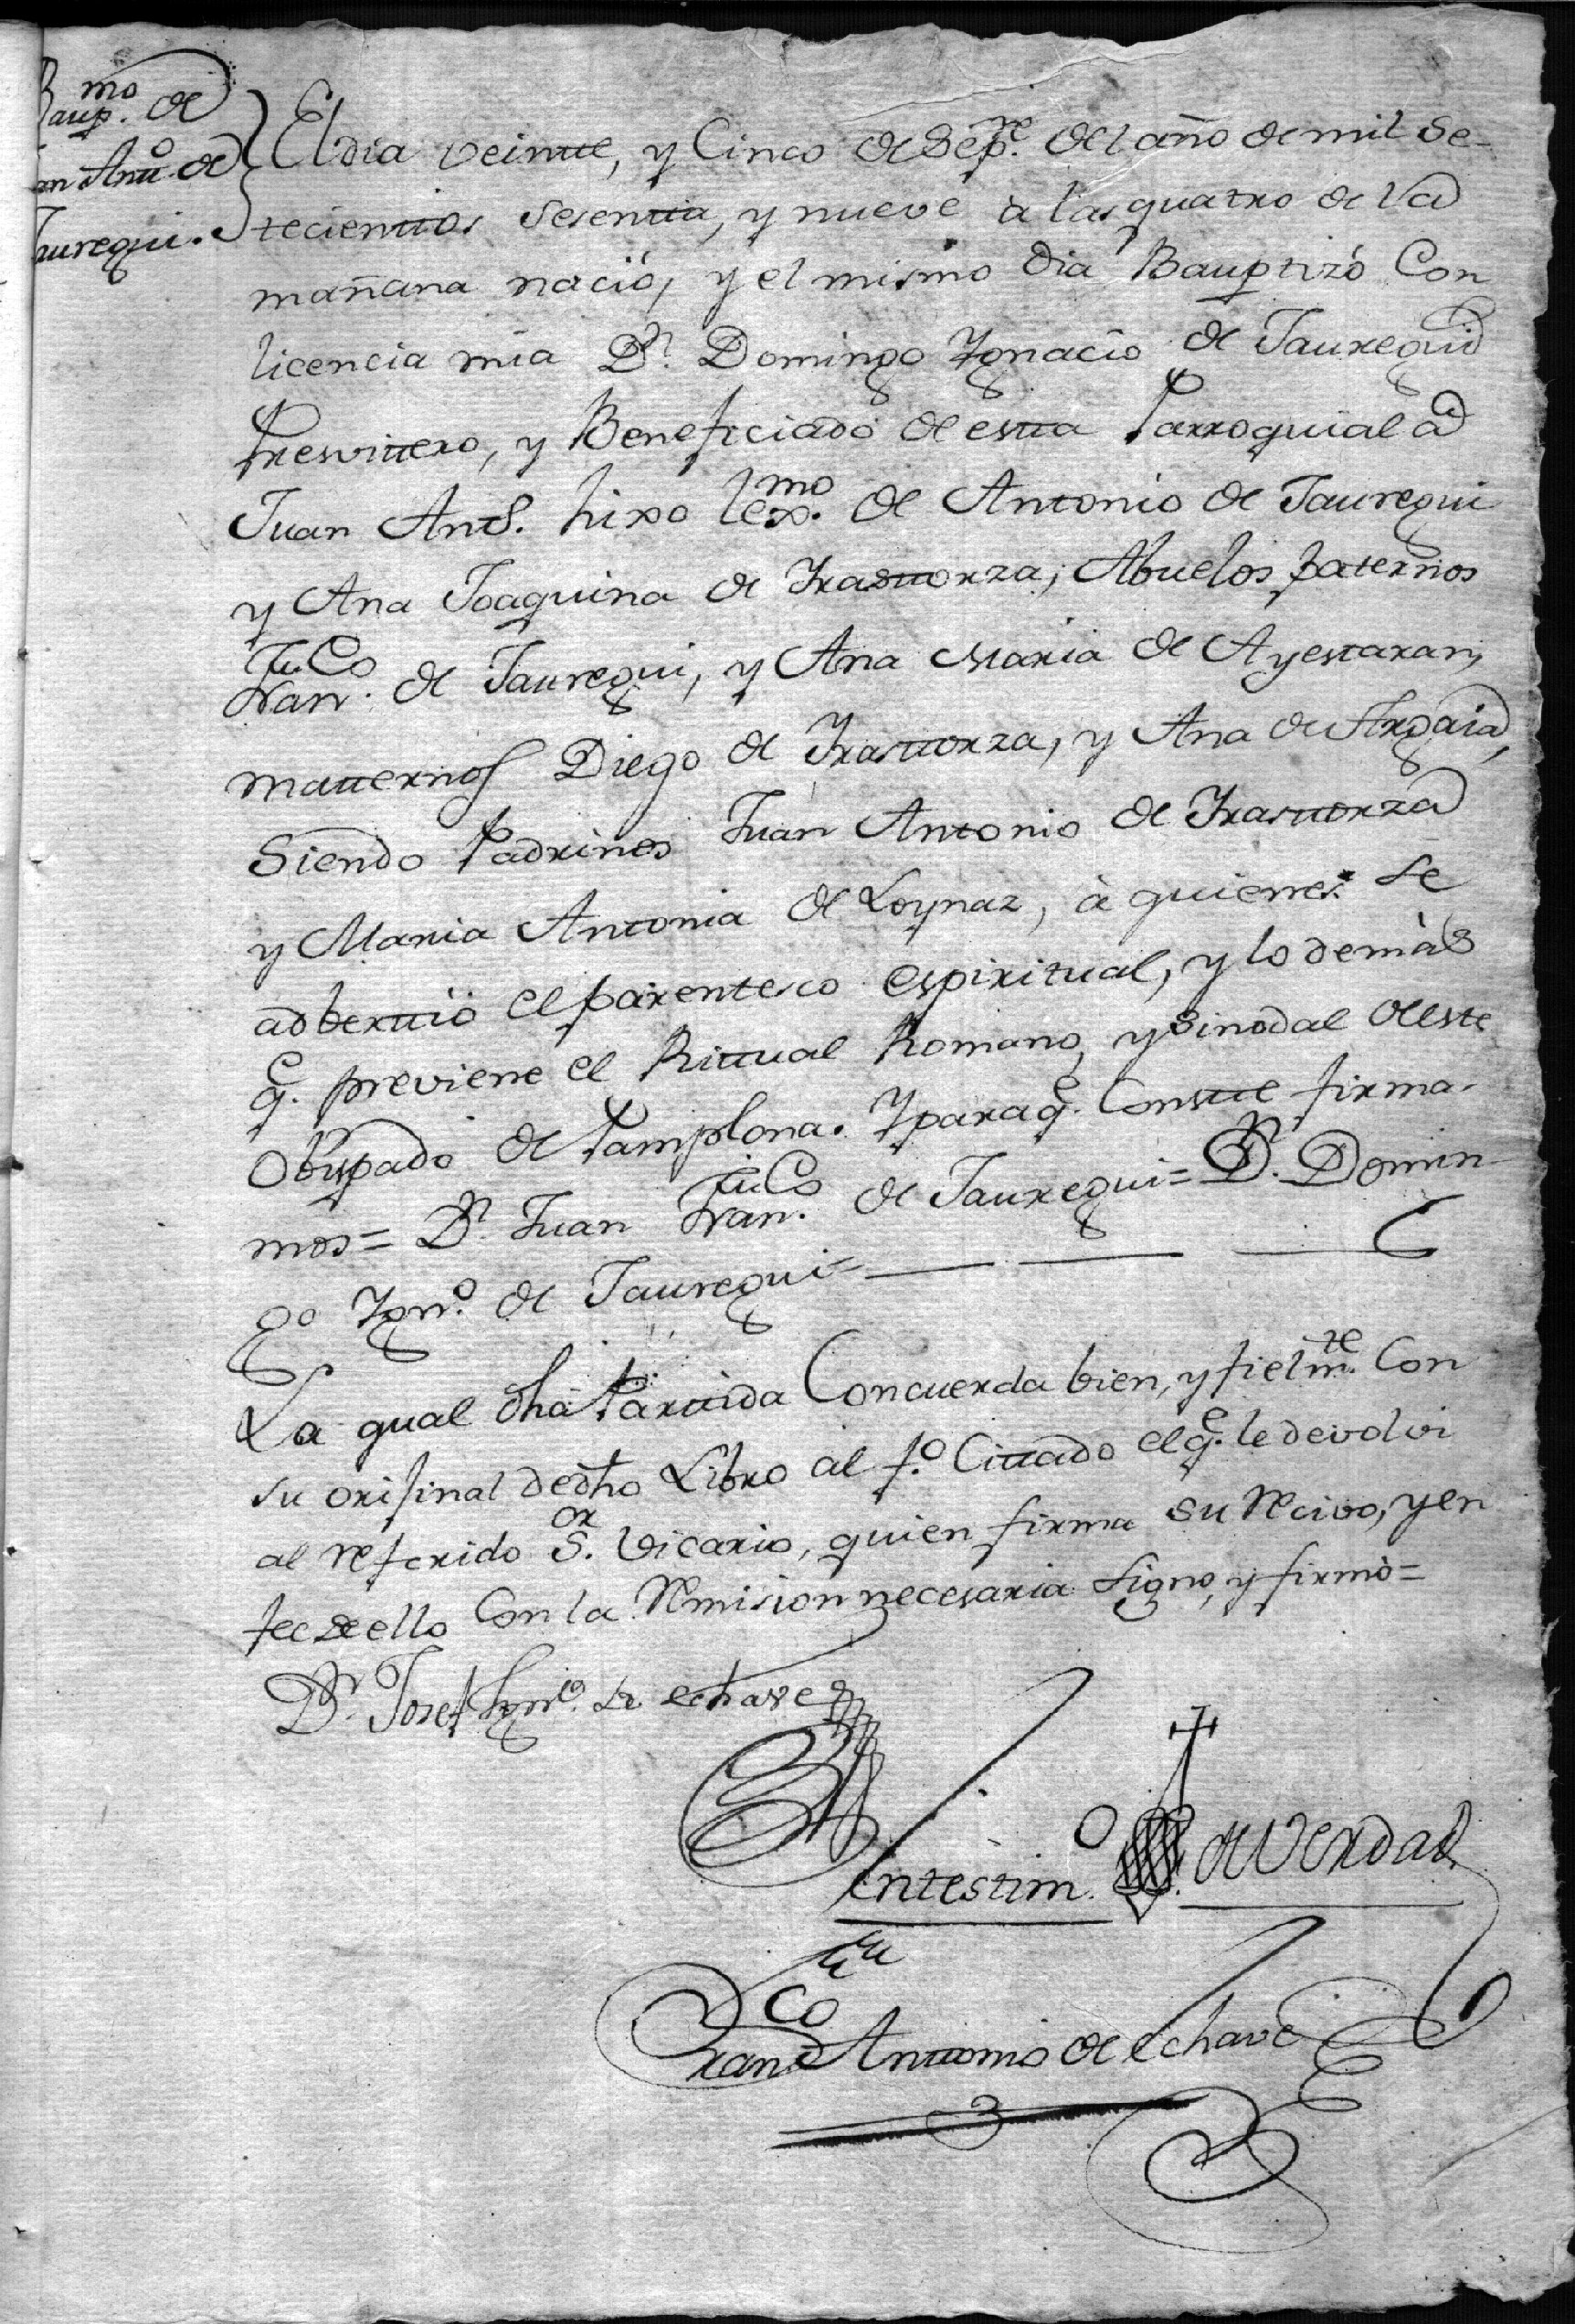 Baup.mo de
Juan Antt.o de
Jauregui.
El dia veintte, y Cinco de Sep.re del año de mil Se-
tecienttos Sesentta, y nueve à las quatro de la
mañana naciò, y el mismo dia Bauptizò Con
licencia mia D.n Domingo Ygnacio de Jauregui
Presvittero, y Beneficiado de estta Parroquial a
Juan Ant.o hixo lex.mo de Antonio de Jauregui
y Ana Joaquina de Yrasttorza; Abuelos paternos
Fran.co de Jauregui, y Ana Maria de Ayestaran,
matternos Diego de Yrasttorza, y Ana de Argaia,
Siendo Padrinos Juan Antonio de Yrasttorza
y Maria Antonia de Loynaz, à quienes se
adberttiò el parentesco espiritual, y lo demàs
q.e previene el Rittual Romano, y Sinodal de este
Obispado de Pamplona. Y para q.e Constte firma-
mos= D.n Juan Fran.co de Jauregui= D.n Domin-
go Ygn.o de Jauregui=
La qual dha Parttida Concuerda bien, y fielm.te Con
su orijinal de dho Libro al f.o Cittado el q.e le devolvi
al referido S.or Vicario, quien firma su Recivo, y en
fee de ello Con la Remision necesaria signo, y firmò=
D.n Josef Ygn.io de echave
En testim.o de Verdad
Fran.co Anttonio de echave